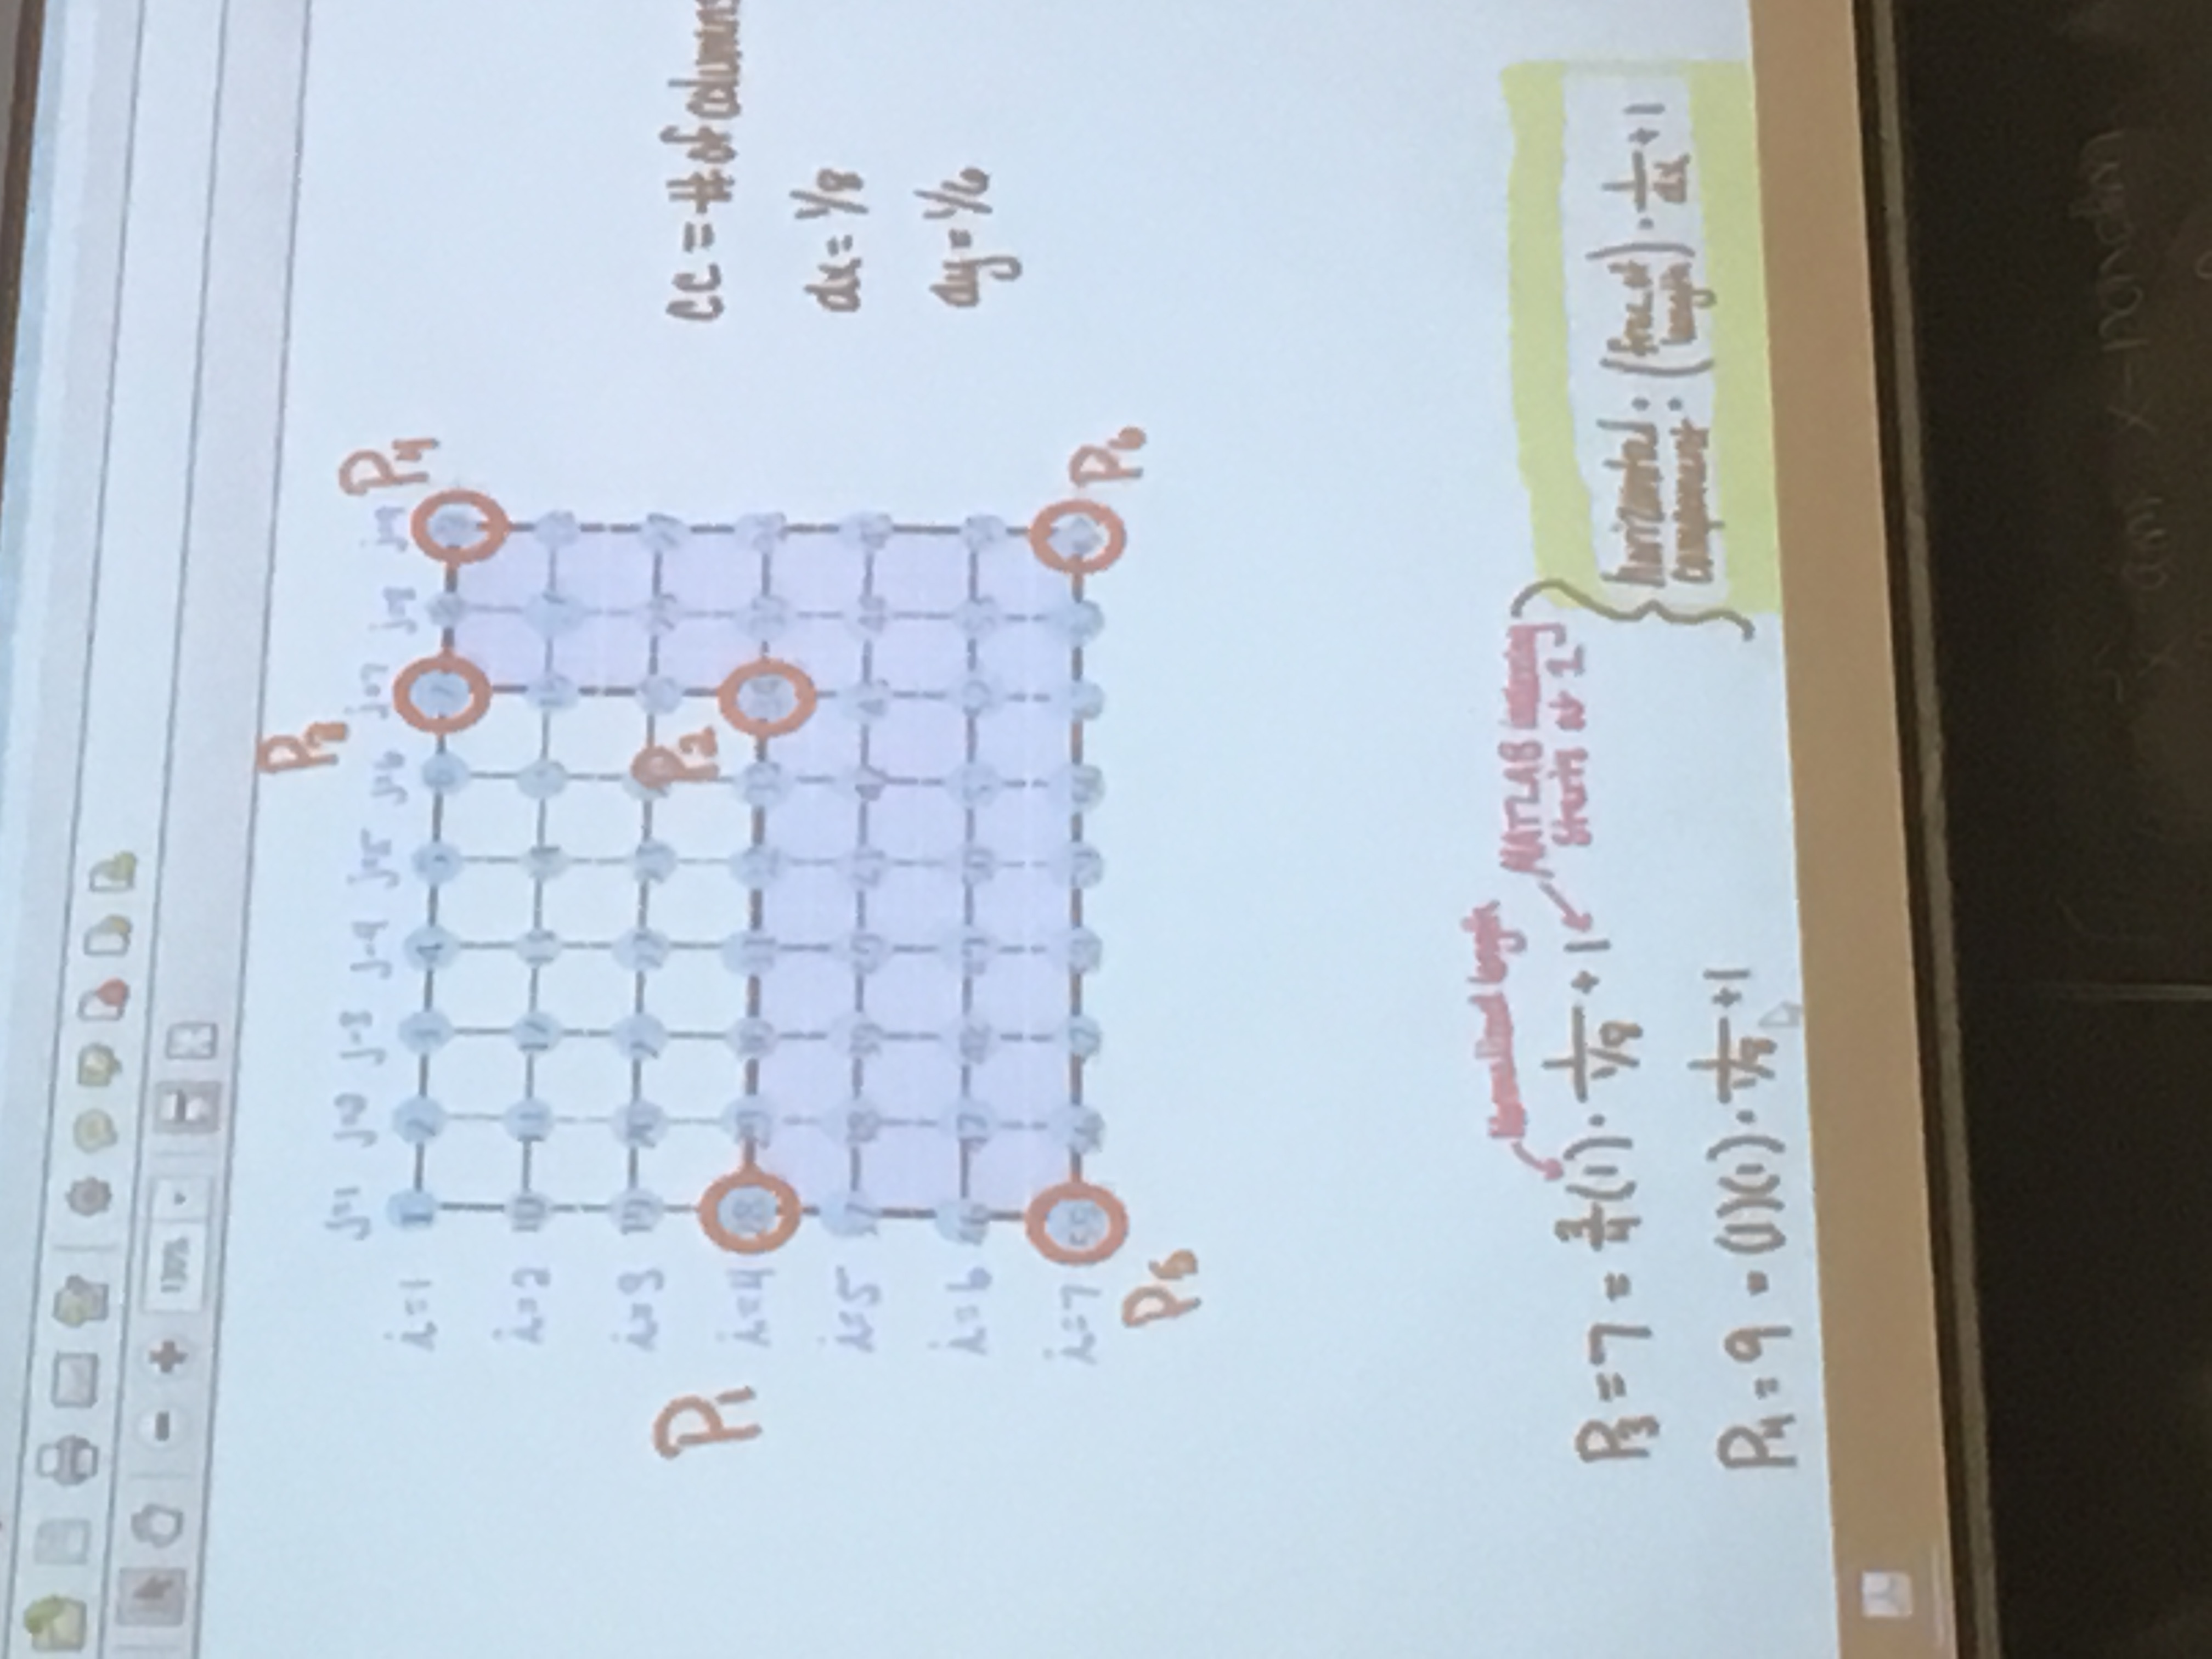 130%
P3
j=1 j=2 j=3 j=4 j=5 j=6 j=7 j=8 j=9 P4
i=1 1 2 3 4 5 6 7 8 9
i=2 10 11 12 13 14 15 16 17
i=3 19 20 21 22 23
P1 P2
i=4 28 29 30 31 32 33 34
i=5 37 38 39 40 41 42 43 44 45
i=6 46 47 48 49 50 51 52 53
i=7 55 56 57 58 59
P5 P6
CC = # of columns
dx = 1/8
dy = 1/6
Normalized length
MATLAB indexing
starts at 1
P3 = 7 = 3/4 (1) · 1/(1/8) + 1
P4 = 9 = (1)(1) · 1/(1/8) + 1
horizontal component : (frac. of length) · 1/dx + 1